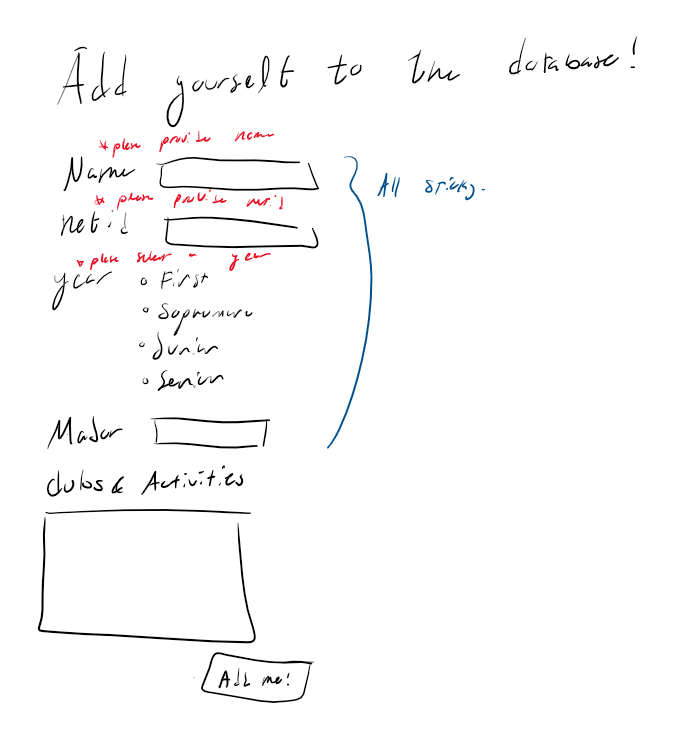 Add yourself to the database!
* please provide name
Name
All sticky.
* please provide netid
netid
* please select a year
year
First
Sophomore
Junior
Senior
Major
clubs & Activities
Add me!